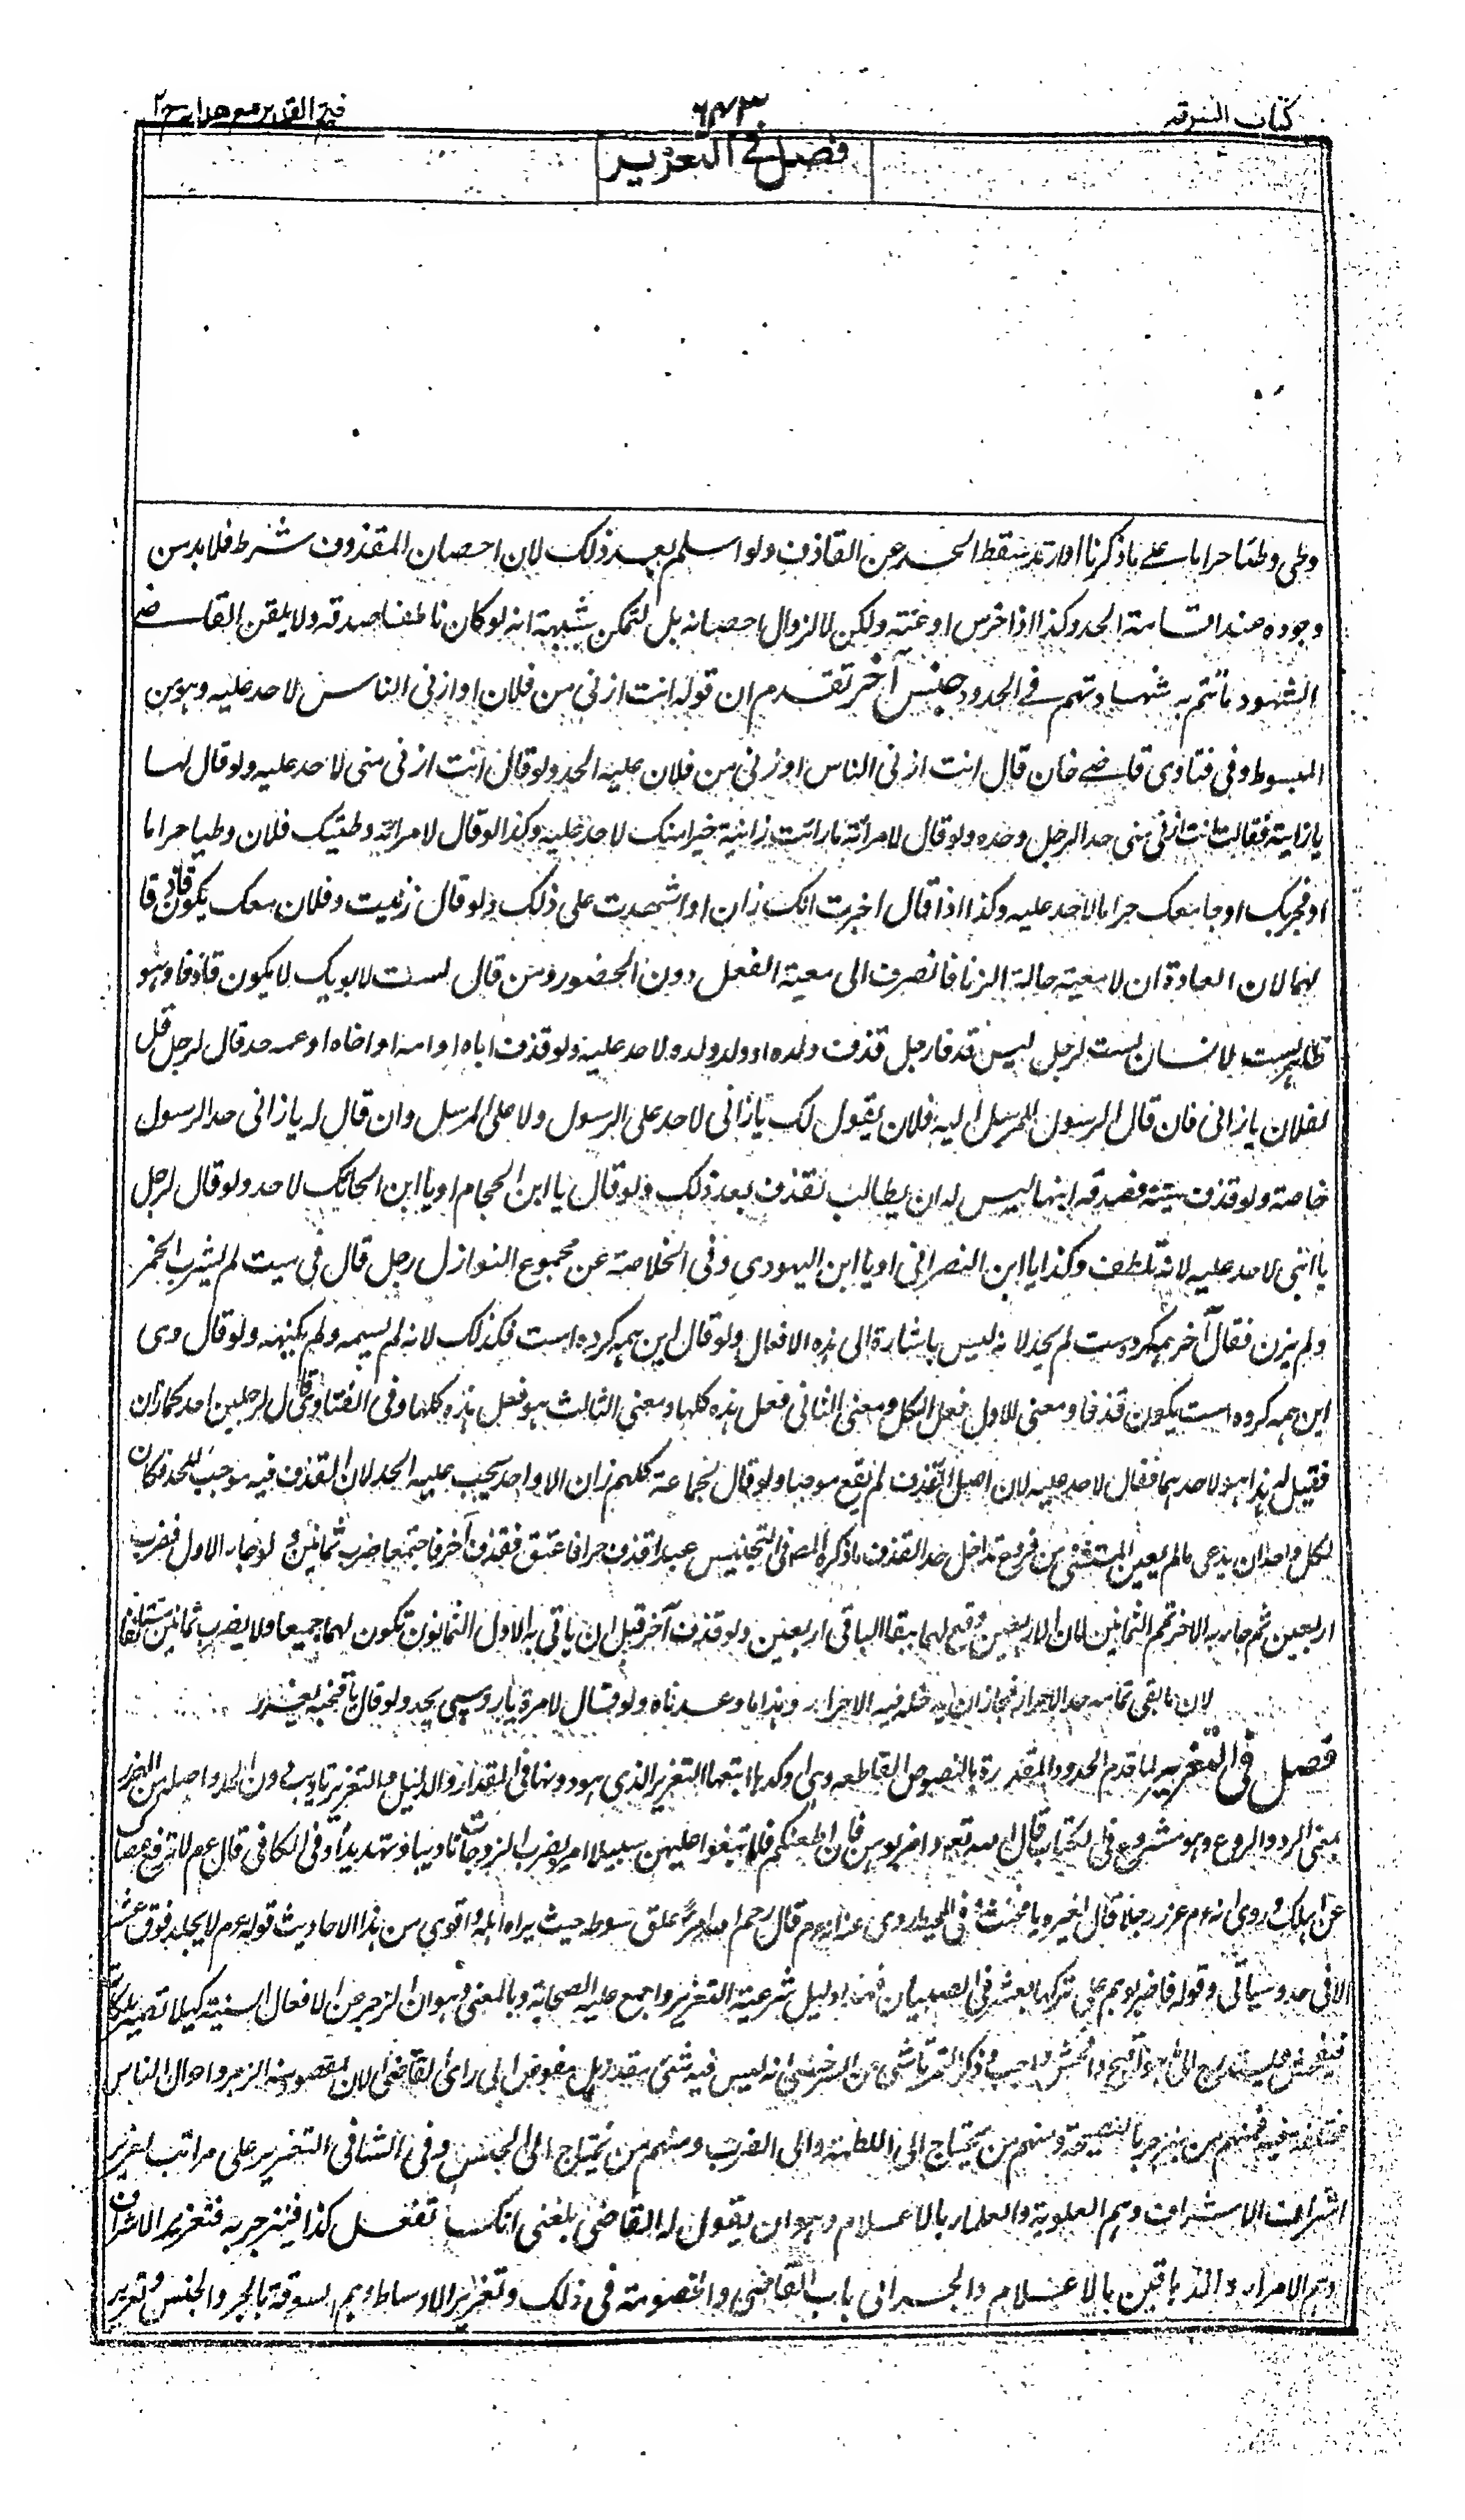 كتاب السرقة
٦٤٣
فتح القدير مع هدايه ج٢
فصل في التعزير
وطى وطئا حراما على ما ذكرنا او ارتد سقط الحد عن القاذف ولو اسلم بعد ذلك لان احصان المقذوف شرط فلا بد من
وجوده عند اقامة الحد وكذا اذا خرس او عته ولكن لا لزوال احصانه بل لتمكن شبهة انه لو كان ناطقا صدقه ولا يلقن القاضي
الشهود ما تتم به شهادتهم في الحدود جنس آخر تقدم ان قوله انت ازنى من فلان او ازنى الناس لا حد عليه وهو من
المبسوط وفى فتاوى قاضي خان قال انت ازنى الناس او ازنى من فلان عليه الحد ولو قال انت ازنى منى لا حد عليه ولو قال لها
يا زانية فقالت انت ازنى منى حد الرجل وحده ولو قال لامرأته ما رأيت زانية خيرا منك لا حد عليه وكذا لو قال لامرأته وطئيك فلان وطيا حراما
او فجر بك او جامعك حراما لا حد عليه وكذا اذا قال اخبرت انك زان او اشهدت على ذلك ولو قال زنيت وفلان معك يكون قاذفا
لهما لان العادة ان لا معية حالة الزنا فانصرف الى معية الفعل دون الحضور ومن قال لست لابويك لا يكون قاذفا وهو
ظاهر لست لانسان لست لرجل ليس قذفا رجل قذف ولده او ولد ولده لا حد عليه ولو قذف اباه او امه او اخاه او عمه حد قال لرجل قل
لفلان يا زانى فان قال الرسول للمرسل اليه فلان يقول لك يا زانى لا حد على الرسول ولا على المرسل وان قال له يا زانى حد الرسول
خاصة ولو قذف ميتة فصدقه ابنها ليس له ان يطالب بقذف بعد ذلك ولو قال يا ابن الحجام او يا ابن الحائك لا حد ولو قال لرجل
يا ابنى لا حد عليه لانه تلطف وكذا يا ابن النصرانى او يا ابن اليهودى وفى الخلاصة عن مجموع النوازل رجل قال فى ميت لم يشرب الخمر
ولم يزن فقال آخر همه كرده ست لم يحد لانه ليس باشارة الى هذه الافعال ولو قال اين همه كرده است فكذلك لانه لم يسمه ولم يكنه ولو قال وى
اين همه كرده است يكون قذفا ومعنى الاول فعل الكل ومعنى الثانى فعل هذه كلها ومعنى الثالث هو فعل هذه كلها وفى الفتاوى قال لرجلين احدكما زان
فقيل له هذا هو لاحدهما فقال لا حد عليه لان اصل القذف لم يقع موجبا ولو قال لجماعة كلهم زان الا واحد يجب عليه الحد لان القذف فيه موجب للحد فكان
لكل واحد ان يدعى ما لم يعين المستثنى من فروع تداخل حد القذف ما ذكره المص فى التجنيس عبد قذف حرا فاعتق فقذف آخر فاجتمعا ضرب ثمانين ولو جاء الاول فضرب
اربعين ثم جاء به الاخر تمم الثمانين لان الاربعين وقع لهما بقا الباقى اربعين ولو قذف آخر قبل ان ياتى به الاول الثمانون تكون لهما جميعا ولا يضرب ثمانين مستانفا
لان ما بقى تمامه حد الاحرار فجاز ان يدخل فيه الاحرار وهذا ما وعدناه ولو قال لامرأة يا روسپى يحد ولو قال يا قحبة يعزر
فصل في التعزير لما قدم الحدود المقدرة بالنصوص القاطعه وهى اوكد ها اتبعها التعزير الذى هو دونها فى المقدار والدليل والتعزير تاديب دون الحد واصله من العزر
بمعنى الرد والردع وهو مشروع فى الكتاب قال الله تعه واضربوهن فان اطعنكم فلا تبغوا عليهن سبيلا امر بضرب الزوجات تاديبا وتهديدا وفى الكافى قال عم لا ترفع عصاك
عن اهلك وروى انه عم عزر رجلا قال لغيره يا مخنث وفى المحيط روى عنه انه عم قال رحم الله امرء علق سوطه حيث يراه اهله واقوى من هذا الاحاديث قوله عم لا يجلد فوق عشر
الا فى حد وسياتى وقوله فاضربوهم على تركها بعشر فى الصبيان فهذا دليل شرعية التعزير واجمع عليه الصحابة وبالمعنى وهو ان الزجر عن الافعال السيئة كيلا تصير ملكات
فيفحش ويستدرج الى ما هو اقبح وافحش واجب وذكر التمرتاشى عن السرخسى انه ليس فيه شئ مقدر بل مفوض الى رأى القاضى لان المقصود منه الزجر واحوال الناس
مختلفة فيه فمنهم من ينزجر بالنصيحة ومنهم من يحتاج الى اللطمة والى الضرب ومنهم من يحتاج الى الحبس وفى الشافى التعزير على مراتب تعزير
اشراف الاشراف وهم العلوية والعلماء بالاعلام وهو ان يقول له القاضى بلغنى انك تفعل كذا فينزجر به فتعزير الاشراف
وهم الامراء والدهاقين بالاعلام والجر الى باب القاضى والخصومة فى ذلك وتعزير الاوساط وهم السوقة بالجر والحبس وتعزير